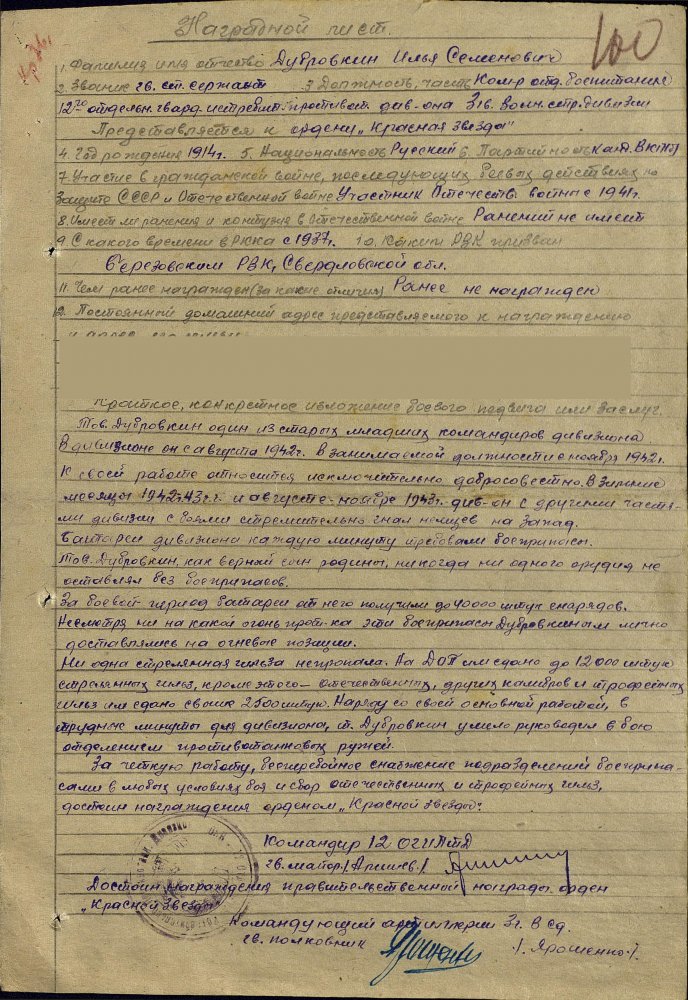 Наградной лист.
100
1. Фамилия имя отчество Дубровкин Илья Семенович
2. Звание гв. ст. сержант 3. Должность, часть Комр отд. боепитания
12го отдельн. гвард. истребит. противот. див-она 3 гв. Волн. стр. дивизии
Представляется к ордену „Красная Звезда"
4. Год рождения 1914г. 5. Национальность Русский 6. Партийность канд. ВКП(б)
7. Участие в гражданской войне, последующих боевых действиях по
защите СССР и Отечественной войне Участник Отечеств. войны с 1941г.
8. Имеет ли ранения и контузии в Отечественной войне Ранений не имеет
9. С какого времени в РККА с 1937г. 10. Каким РВК призван
Березовским РВК, Свердловской обл.
11. Чем ранее награжден (за какие отличия) Ранее не награжден
12. Постоянный домашний адрес представляемого к награждению
Краткое, конкретное изложение боевого подвига или заслуг.
Тов. Дубровкин один из старых младших командиров дивизиона
В дивизионе он с августа 1942г. В занимаемой должности с ноября 1942г.
К своей работе относится исключительно добросовестно. В зимние
месяцы 1942-43г.г. и августе-ноябре 1943г. див-он с другими частя-
ми дивизии с боями стремительно гнал немцев на запад.
Батареи дивизиона каждую минуту требовали боеприпасы.
Тов. Дубровкин, как верный сын родины, никогда ни одного орудия не
оставлял без боеприпасов.
За боевой период батареи от него получили до 40000 штук снарядов.
Несмотря ни на какой огонь прот-ка эти боеприпасы Дубровкиным лично
доставлялись на огневые позиции.
Ни одна стрелянная гильза не пропала. На ДОП им сдано до 12000 штук
стрелянных гильз, кроме этого - отечественных, других калибров и трофейных
гильз им сдано свыше 2500 штук. Наряду со своей основной работой, в
трудные минуты для дивизиона, т. Дубровкин умело руководил в бою
отделением противотанковых ружей.
За четкую работу, бесперебойное снабжение подразделений боеприпа-
сами в любых условиях боя и сбор отечественных и трофейных гильз,
достоин награждения орденом „Красной Звезды".
Командир 12 ОГИПТД
гв. майор /Аршев./
Достоин награждения правительственной награды орден
„Красной Звезды"
Командующий артиллерии 3 г. В сд.
гв. полковник /. Ярошенко./.